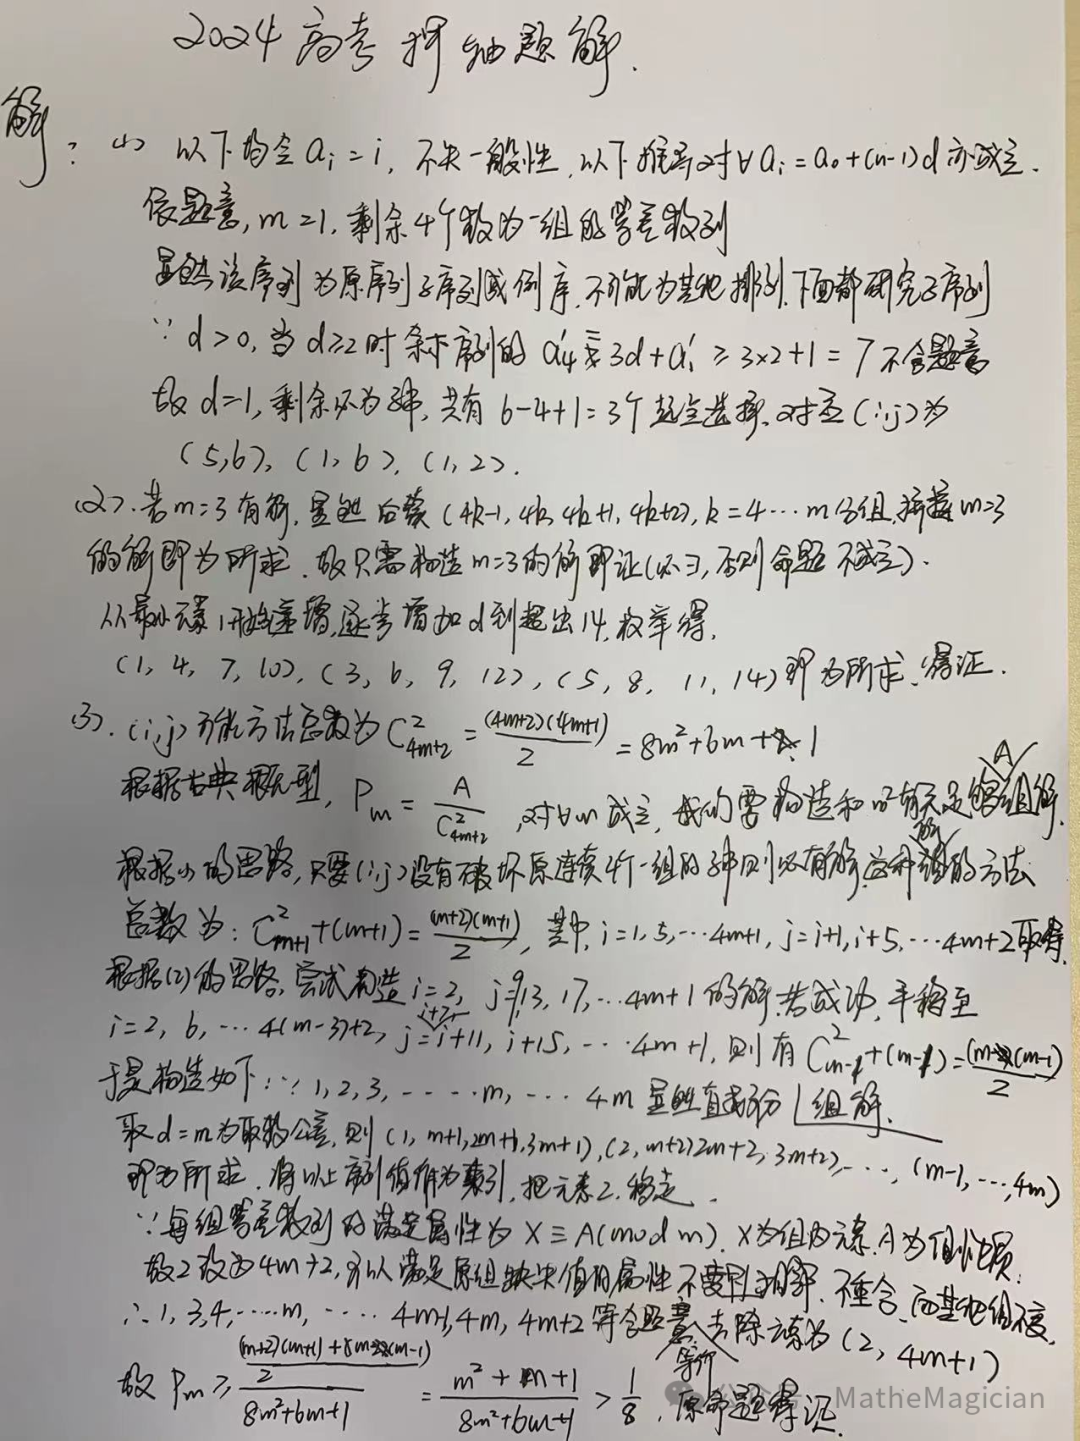 2024高考押轴题解.
解: (1) 以下均令 aᵢ = i, 不失一般性, 以下推导对∀aᵢ = a₀+(n-1)d 亦成立.
依题意, m=1, 剩余4个数为一组的等差数列
显然该序列为原序列子序列或倒序, 不可能为其他排列, 下面都研究子序列
∵ d>0, 当 d≥2时 余下序列的 a₄' 3d+a₁' ≥ 3×2+1 = 7 不合题意
故 d=1, 剩余必为 共有 6-4+1=3个 选择, 对应(i,j)为
(5,6), (1,6), (1,2).
(2). 若m=3有解, 显然后续(4k-1, 4k, 4k+1, 4k+2), k=4…m分组, 拼接m=3
的解即为所求. 故只需构造m=3的解即证(必∃, 否则命题不成立).
从最小元素1开始递增, 逐步增加d到超出14, 枚举得,
(1, 4, 7, 10), (3, 6, 9, 12), (5, 8, 11, 14) 即为所求, 得证.
(3). (i,j)可能方法总数为 C²₄ₘ₊₂ = (4m+2)(4m+1)/2 = 8m²+6m+1
根据古典概型, Pₘ = A/C²₄ₘ₊₂, 对∀m成立, 我们需构造和m有关足够A组解.
根据(1)的思路, 只要(i,j)没有破坏原连续4个一组的 则必有解, 这种 的方法
总数为: C²ₘ₊₁+(m+1) = (m+2)(m+1)/2, 其中, i=1,5,…4m+1, j=i+1,i+5,…4m+2取得.
根据(2)的思路, 尝试构造 i=2, j=9,13,17,…4m+1的解, 若成功, 平移至
i=2, 6, …4(m-3)+2, j=i+7, i+11, i+15, …4m+1, 则有 C²ₘ₋₁+(m-1) = (m-1)/2 组解.
于是构造如下: ∵ 1,2,3,……m,…4m 显然直接分
取d=m为取数公差, 则(1, m+1, 2m+1, 3m+1), (2, m+2, 2m+2, 3m+2),…, (m-1,…,4m)
即为所求. 将以上序列值作为索引, 把元素2.
∵ 每组等差数列的满足属性为 X≡A(mod m). X为组内元素, A为
故2改为4m+2, 可以满足原组缺失值的属性 不重合, 而其他组不变.
∴ 1, 3, 4, ……m, ……4m-1, 4m, 4m+2 符合题意, 去除元素为(2, 4m+1)
故 Pₘ ≥ = m²+m+1/8m²+6m+1 > 1/8, 原命题得证.
公众号 · MatheMagician